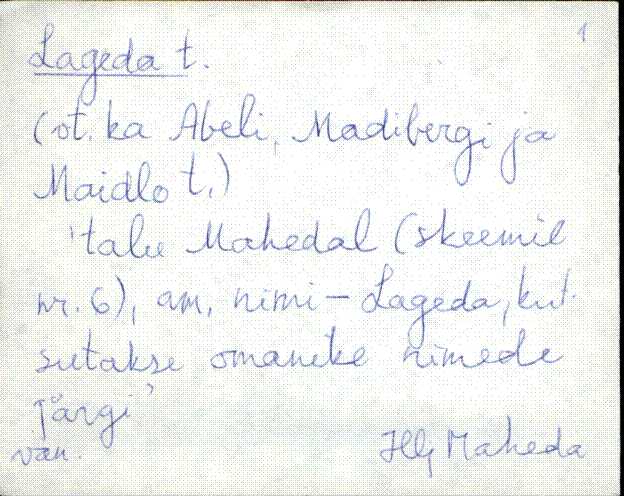 1
Lageda t.
(vt. ka Abeli, Madibergi ja
Maidlo t.)
'talu Mahedal (skeemil
nr. 6), am. nimi - Lageda, kut-
sutakse omanike nimede
järgi'
van. Hlj Maheda